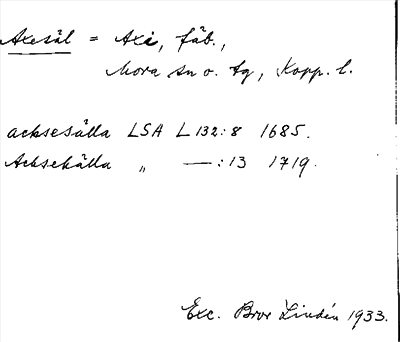 Axesäl = Axi, fäb.,
Mora sn o. tg, Kopp. l.
acksesälla LSA L 132:8 1685.
Acksehälla „ — :13 1719.
Exc. Bror Lindén 1933.